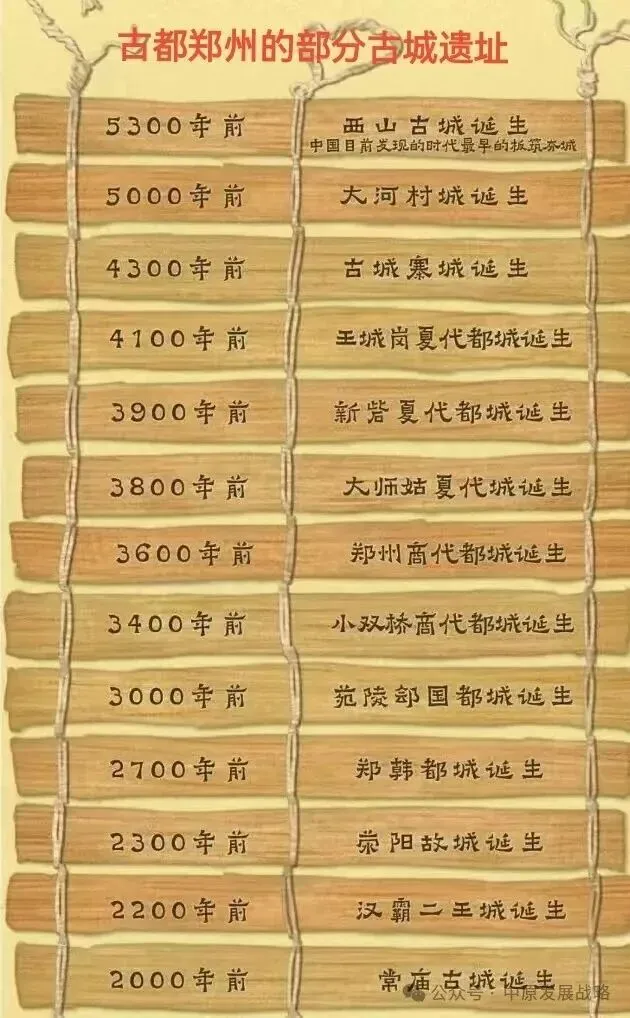 古都郑州的部分古城遗址
5300年前 西山古城诞生
中国目前发现的时代最早的板筑夯城
5000年前 大河村城诞生
4300年前 古城寨城诞生
4100年前 王城岗夏代都城诞生
3900年前 新砦夏代都城诞生
3800年前 大师姑夏代城诞生
3600年前 郑州商代都城诞生
3400年前 小双桥商代都城诞生
3000年前 苑陵郐国都城诞生
2700年前 郑韩都城诞生
2300年前 荥阳故城诞生
2200年前 汉霸二王城诞生
2000年前 常庙古城诞生
公众号·中原发展战略